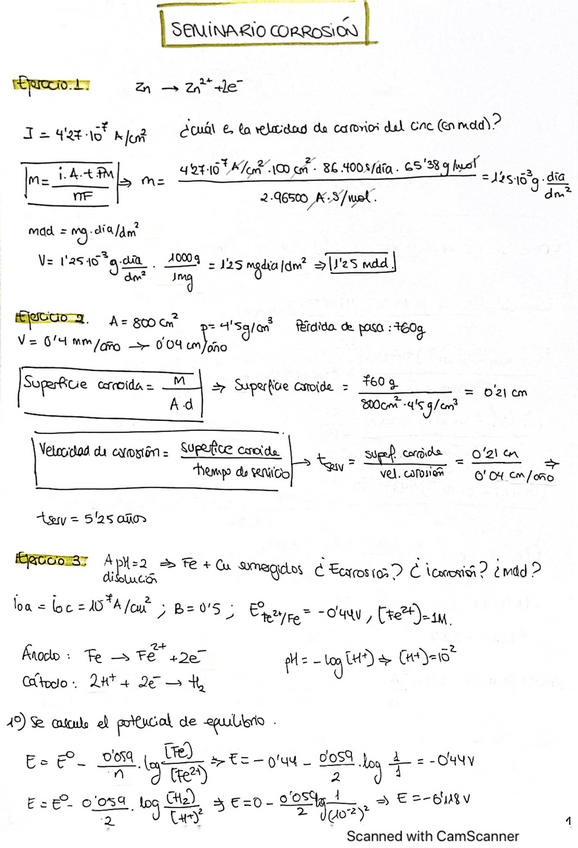 SEMINARIO CORROSIÓN
Ejercicio 1. Zn → Zn²⁺ + 2e⁻
I = 4'27·10⁻⁷ A/cm² ¿cuál es la velocidad de corrosión del cinc (en mdd)?
m = i.A.t.PM / nF ⇒ m = 4'27·10⁻⁷ A/cm² · 100 cm² · 86.400 s/día · 65'38 g/mol / 2.96500 A.S/mol. = 1'25·10⁻³ g · día/dm²
mdd = mg·dia/dm²
V = 1'25·10⁻³ g·dia/dm² · 1000g/1mg = 1'25 mgdia/dm² ⇒ 1'25 mdd.
Ejercicio 2. A = 800 cm² ρ = 4'5g/cm³ Pérdida de pasa : 760g
V = 0'4 mm/año → 0'04 cm/año
Superficie corroida = M / A.d ⇒ Superficie corroide = 760 g / 800cm²·4'5g/cm³ = 0'21 cm
Velocidad de corrosión = superfice coroide / tiempo de servicio → tserv = superf. corroide / vel. corrosión = 0'21 cm / 0'04 cm/año ⇒
tserv = 5'25 años
Ejercicio 3. A pH=2 ⇒ Fe + Cu sumergidos ¿Ecorrosión? ¿icorrosión? ¿mdd?
disolución
ioa = ioc = 10⁻⁷A/cm² ; B = 0'5 ; E⁰Fe²⁺/Fe = -0'44V , [Fe²⁺] = 1M.
Ánodo : Fe → Fe²⁺ + 2e⁻ pH = - log [H⁺] ⇒ [H⁺] = 10⁻²
Cátodo : 2H⁺ + 2e⁻ → H₂
1º) Se calcula el potencial de equilibrio.
E = E⁰ - 0'059/n · log [Fe]/[Fe²⁺] ⇒ E = -0'44 - 0'059/2 · log 1/1 = -0'44 V
E = E⁰ - 0'059/2 · log [H₂]/[H⁺]² ⇒ E = 0 - 0'059/2 lg 1/(10⁻²)² ⇒ E = -0'118 V
1
Scanned with CamScanner